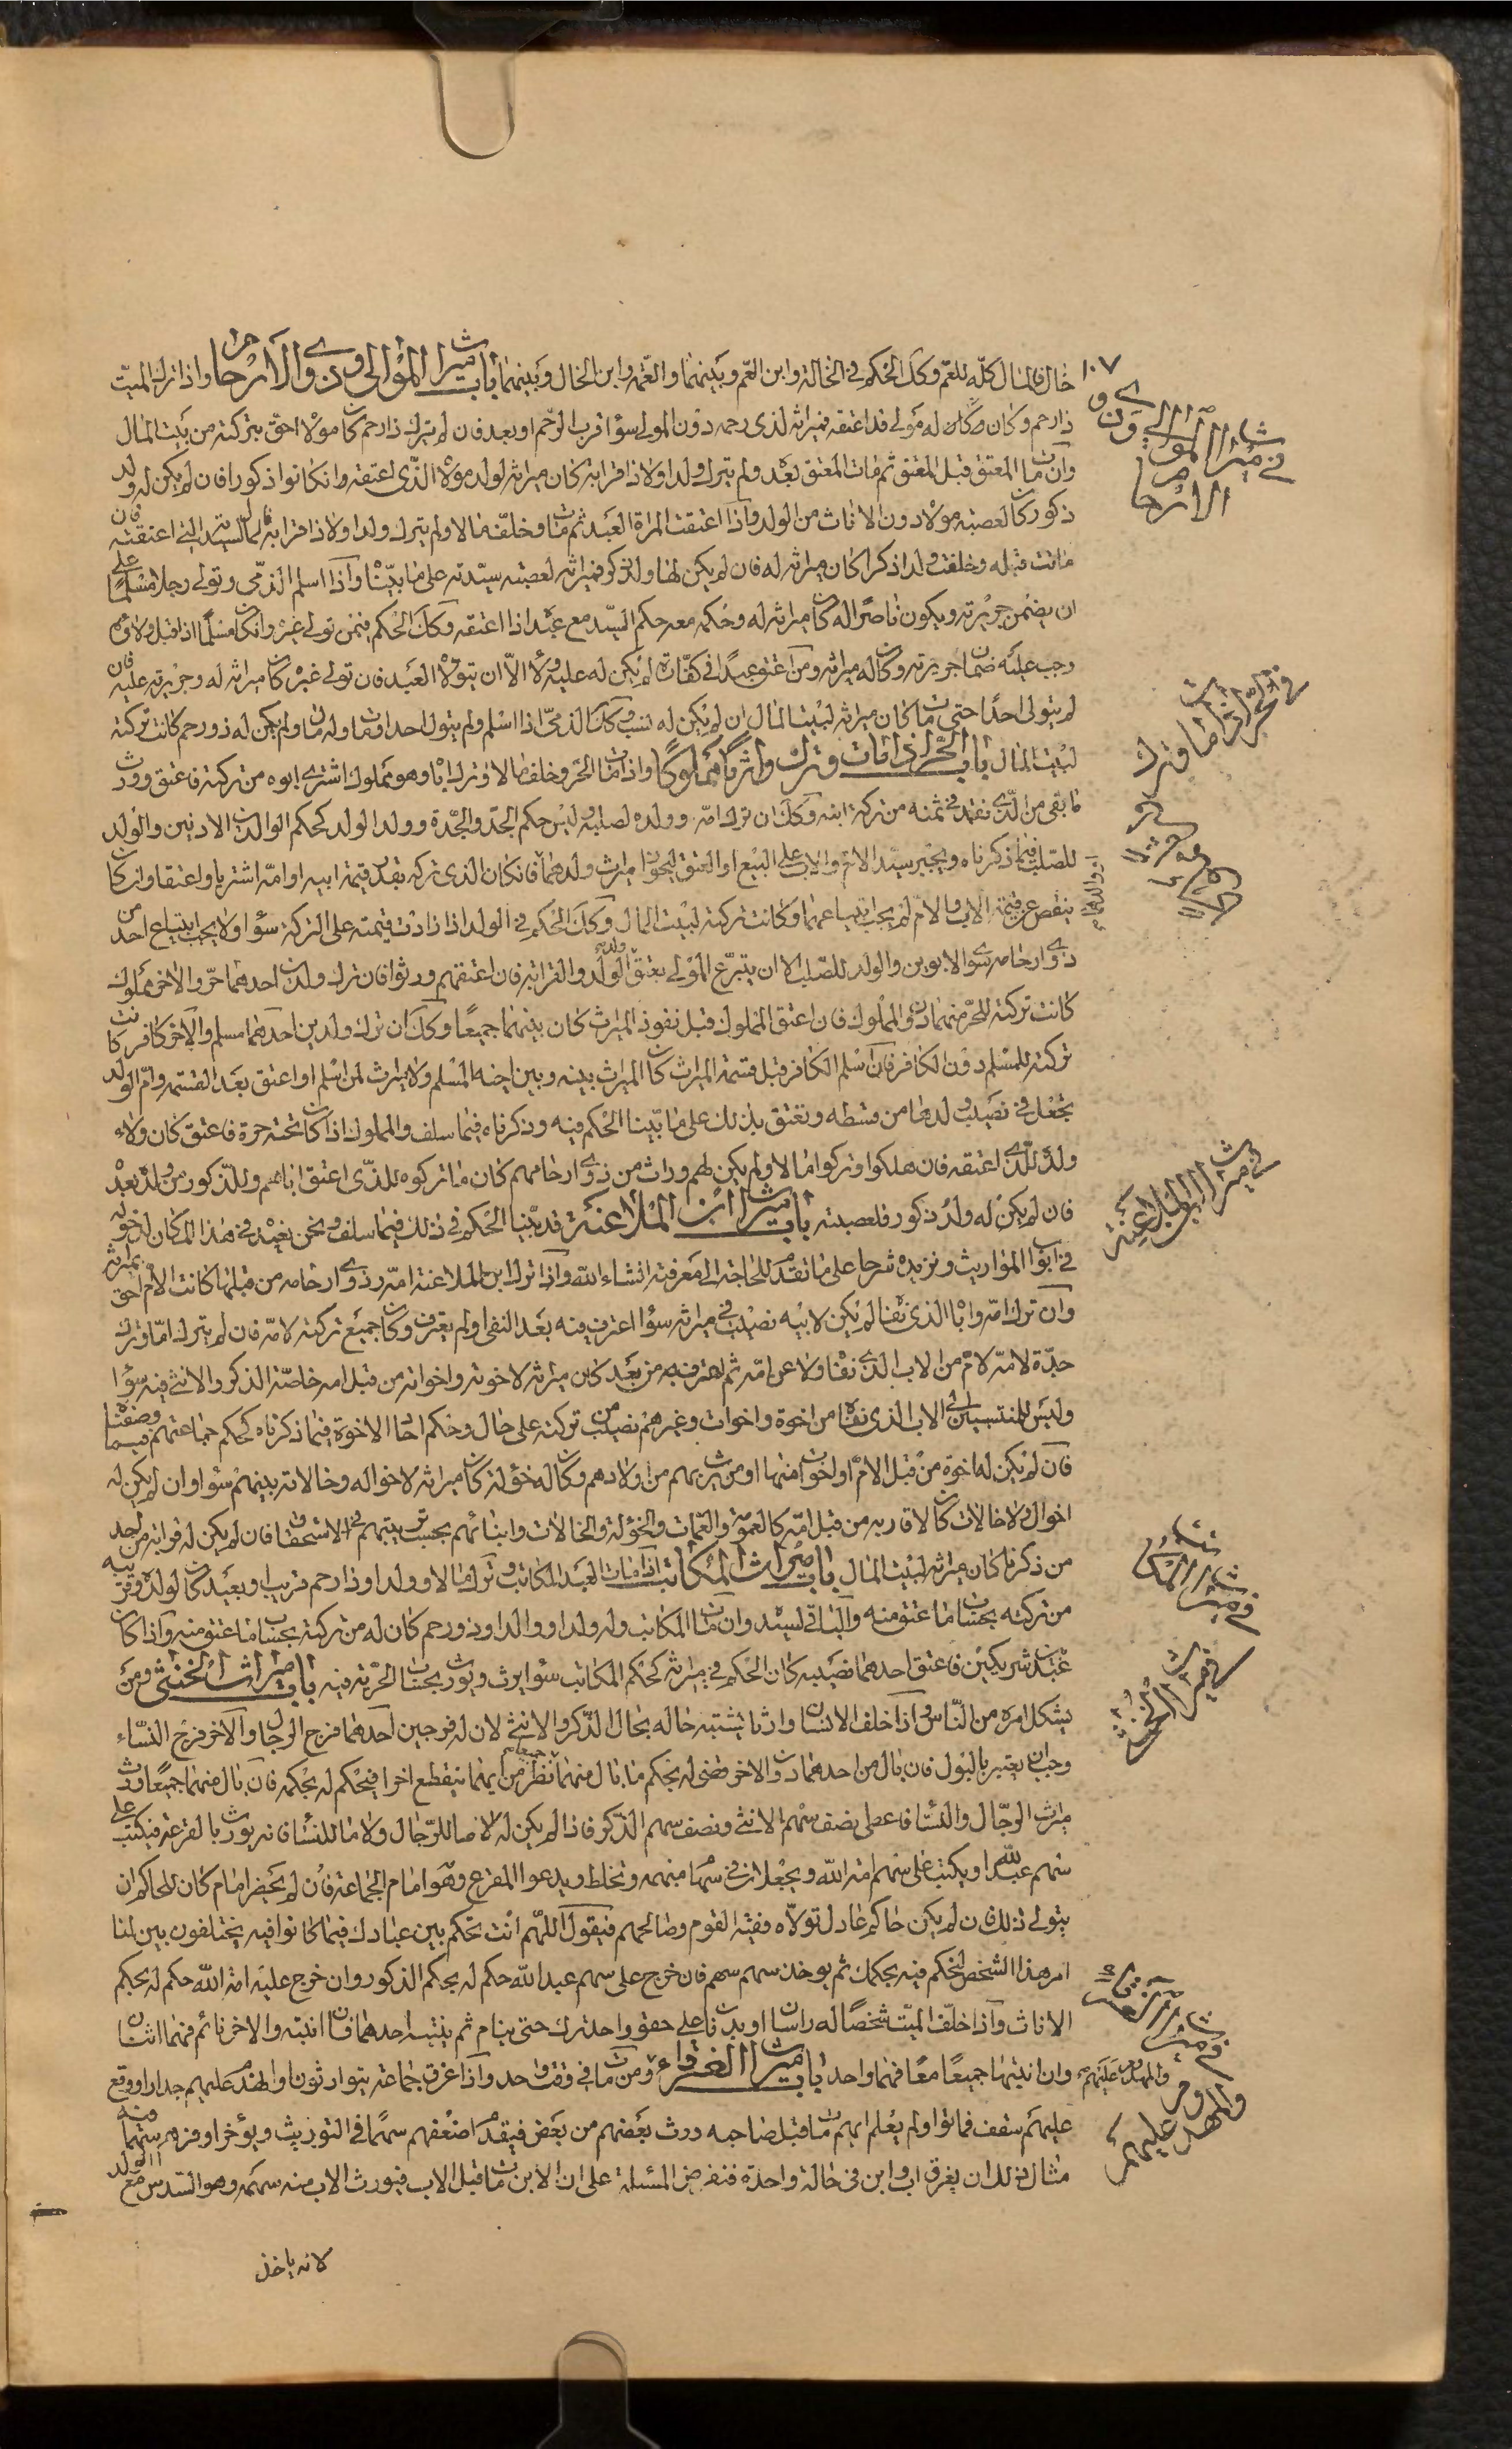 ١٠٧
خال فالمال كلّه للعمّ وكك الحكم في الخالة وابن العمّ وبينهما والعمّه وابن الخال وبينهما باب ميراث الموالى وذوي الارحام واذا ترك الميّت
ذا رحم وكان له مولى قد اعتقه فميراثه لذى رحمه دون المولى سوا قرب الرّحم او بعد فان لم يترك ذا رحم كان مولاه احق بتركته من بيت المال
وان مات المعتق قبل المعتق ثم مات المعتق بعده ولم يترك ولدا ولا ذا قرابة كان ميراثه لولد مولاه الذّى اعتقه وان كانوا ذكورا فان لم يكن له ولد
ذكور كان لعصبته مولاه دون الاناث من الولد واذا اعتقت المراة العبد ثم مات وخلّف مالا ولم يترك ولدا ولا ذا قرابه فماله لسيّدته التى اعتقته فان
ماتت قبله وخلفت ولدا ذكرا كان ميراثه له فان لم يكن لها ولد ذكور فميراثه لعصبته سيّدته على ما بيّنّا واذا اسلم الذمّى وتولى رجلا مسلما على
ان يضمن جريرته ويكون ناصرا له كان ميراثه له وحكمه معه حكم السيّد مع عبده اذا اعتقه وكك الحكم فيمن تولى غيره وان كان مسلما اذا قبل ولاؤه
وجب عليه ضمان جريرته وكان له ميراثه ومن اعتق عبدا في كفّارة لم يكن له عليه ولاء الاّ ان يتولاه العبد فان تولى غيره كان ميراثه له وجريرته عليه فان
لم يتولى احدا حتى مات كان ميراثه لبيت المال ان لم يكن له نسب وكك الذمىّ اذا اسلم ولم يتول احدا ومات وله مال ولم يكن له ذو رحم كانت تركته
لبيت المال باب الحرّ اذا مات وترك وارثا مملوكا واذا مات الحرّ وخلف مالا وترك ابا وهو مملوك اشترى ابوه من تركته فاعتق وورث
ما بقى من الذّى نقد في ثمنه من تركة ابنه وكك ان ترك امّه وولده لصلبه وليس حكم الجدّ والجدّة وولد الولد كحكم الوالدين الادنين والولد
للصّلب فيما ذكرناه ويجبر سيّد الام والاب على البيع او العتق ليحوزا ميراث ولدهما فان كان الذى تركه بقدر قيمة ابيه او امّه اشتريا واعتقا وان كان
ينقص عن قيمة الاب والام لم يجب ابتياعهما وكانت تركته لبيت المال وكك الحكم في الولد اذا زادت قيمته على التركة سوا ولا يجب ابتياع احد من
ذوي ارحامه سوى الابوين والولد للصّلب الا ان يتبرّع المولى بعتق الولد والقرابة فان اعتقهم ورثوا فان ترك ولدين احدهما حرّ والاخر مملوك
كانت تركته للحرّ منهما دون المملوك فان اعتق المملوك قبل نفوذ الميراث كان بينهما جميعا وكك ان ترك ولدين احدهما مسلم والاخر كافر كانت
تركته للمسلم دون الكافر فان اسلم الكافر قبل قسمة الميراث كان الميراث بينه وبين اخيه المسلم ولا ميراث لمن اسلم او اعتق بعد القسمة وامّ الولد
تجعل في نصيب ولدها من قسطه وتعتق بذلك على ما بيّنا الحكم فيه وذكرناه فيما سلف والمملوك اذا كان تحته حرة فاعتق كان ولاء
ولده للذّى اعتقه فان هلكوا وتركوا مالا ولم يكن لهم وراث من ذوي ارحامهم كان ما تركوه للذّى اعتق اباهم وللذّكور من ولده بعده
فان لم يكن له ولد ذكور فلعصبته باب ميراث ابن الملاعنة قد بيّنا الحكم في ذلك فيما سلف ونحن نعيده في هذا المكان لدخوله
في ابواب المواريث ونزيده شرحا على ما تقدّم للحاجة الى معرفته انشاء الله واذا ترك ابن الملاعنة امّه وذوي ارحامه من قبلها كانت الام احق بميراثه
وان ترك امّه وابا الذى نفاه لم يكن لابيه نصيب في ميراثه سوا اعترف به بعد النفى او لم يعترف وكان جميع تركته لامّه فان لم يترك امّا وترك
جدّة لامّه لام من الاب الذى نفاه ولاعن امّه ثم اعترف به من بعد كان ميراثه لاخوته واخواته من قبل امه خاصّة الذكر والانثى فيه سوا
وليس للمنتسبين الى الاب الذى نفاه من اخوة واخوات وغيرهم نصيب من تركته على حال وحكم احاد الاخوة فيما ذكرناه كحكم جماعتهم وصفتنا فيما
فان لم يكن له اخوة من قبل الام او اخوات منها او من يرث بهم من اولادهم وكان له خؤلة كان ميراثه لاخواله وخالاته بينهم سوا وان لم يكن له
اخوال ولا خالات كان لاقاربه من قبل امّه كالعمومة والعمّات والخؤلة والخالات وابنائهم بحسب ترتيبهم في الاستحقاق فان لم يكن له قرابة من احد
من ذكرناه كان ميراثه لبيت المال باب ميراث المكاتب اذا مات العبد المكاتب وترك مالا وولدا وذا رحم قريب او بعيد كان لولده وقريبه
من تركته بحساب ما عتق منه والباقى لسيّده وان مات المكاتب وله ولد او والد او ذو رحم كان له من تركته بحساب ما عتق منه واذا كان
عبد بين شريكين فاعتق احدهما نصيبه كان الحكم في ميراثه كحكم المكاتب سوا يرث ويورث بحساب الحرّية فيه باب ميراث الخنثى ومن
يشكل امره من النّاس واذا خلف الانسان وارثا يشتبه حاله بحال الذّكر والانثى لان له فرجين احدهما فرج الرجال والاخر فرج النسّاء
وجب ان يعتبر بالبول فان بال من احدهما دون الاخر قضى له بحكم ما بال منه وان بال منهما نظر من ايهما ينقطع اخرا فيحكم له بحكمه فان بال منهما جميعا ورث
ميراث الرجّال والنسّا فاعطى نصف سهم الانثى ونصف سهم الذّكر فاذا لم يكن له لا ما للرّجال ولا ما للنسّا فانه يورث بالقرعة فيكتب على
سهم عبد الله ويكتب على سهم امة الله ويجعلان في سهام مبهمه وتخلط ويدعوا المقرع وهو امام الجماعة فان لم يحضر امام كان للحاكم ان
يتولى ذلك فان لم يكن حاكم عادل تولاّه فقيه القوم وصالحهم فيقول اللهّم انت تحكم بين عبادك فيما كانوا فيه يختلفون بين لنا
امر هذا الشخص لنحكم فيه بحكمك ثم يوخذ سهم سهم فان خرج على سهم عبد الله حكم له بحكم الذكور وان خرج عليه امة الله حكم له بحكم
الاناث واذا خلّف الميّت شخصا له راسان او بدنان على حقو واحد ترك حتى ينام ثم ينبه احدهما فان انتبه والاخر نائم فهما اثنان
وان انتبها جميعا معا فهما واحد باب ميراث الغرقاء ومن مات في وقت واحد واذا غرق جماعة يتوارثون او انهدم عليهم جدار او وقع
عليهم سقف فماتوا ولم يعلم ايهم مات قبل صاحبه ورث بعضهم من بعض فيقدّم اضعفهم سهما في التوريث ويؤخر اوفرهم سهما فيه
مثال ذلك ان يغرق اب وابن فى حالة واحدة فنفرض المسئلة على ان الابن مات قبل الاب فيورث الاب منه سهمه وهو السّدس مع الولد
لانه ياخذ
في ميراث الموالى وذوي الارحام
في ميراث ابن الملاعنة
في ميراث المكاتب
في ميراث الخنثى
والمهدوم عليهم